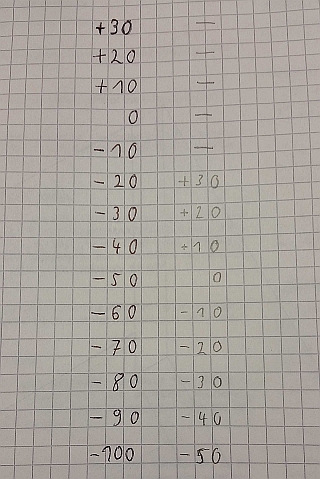 +30 —
+20 —
+10 —
0 —
-10 —
-20 +30
-30 +20
-40 +10
-50 0
-60 -10
-70 -20
-80 -30
-90 -40
-100 -50